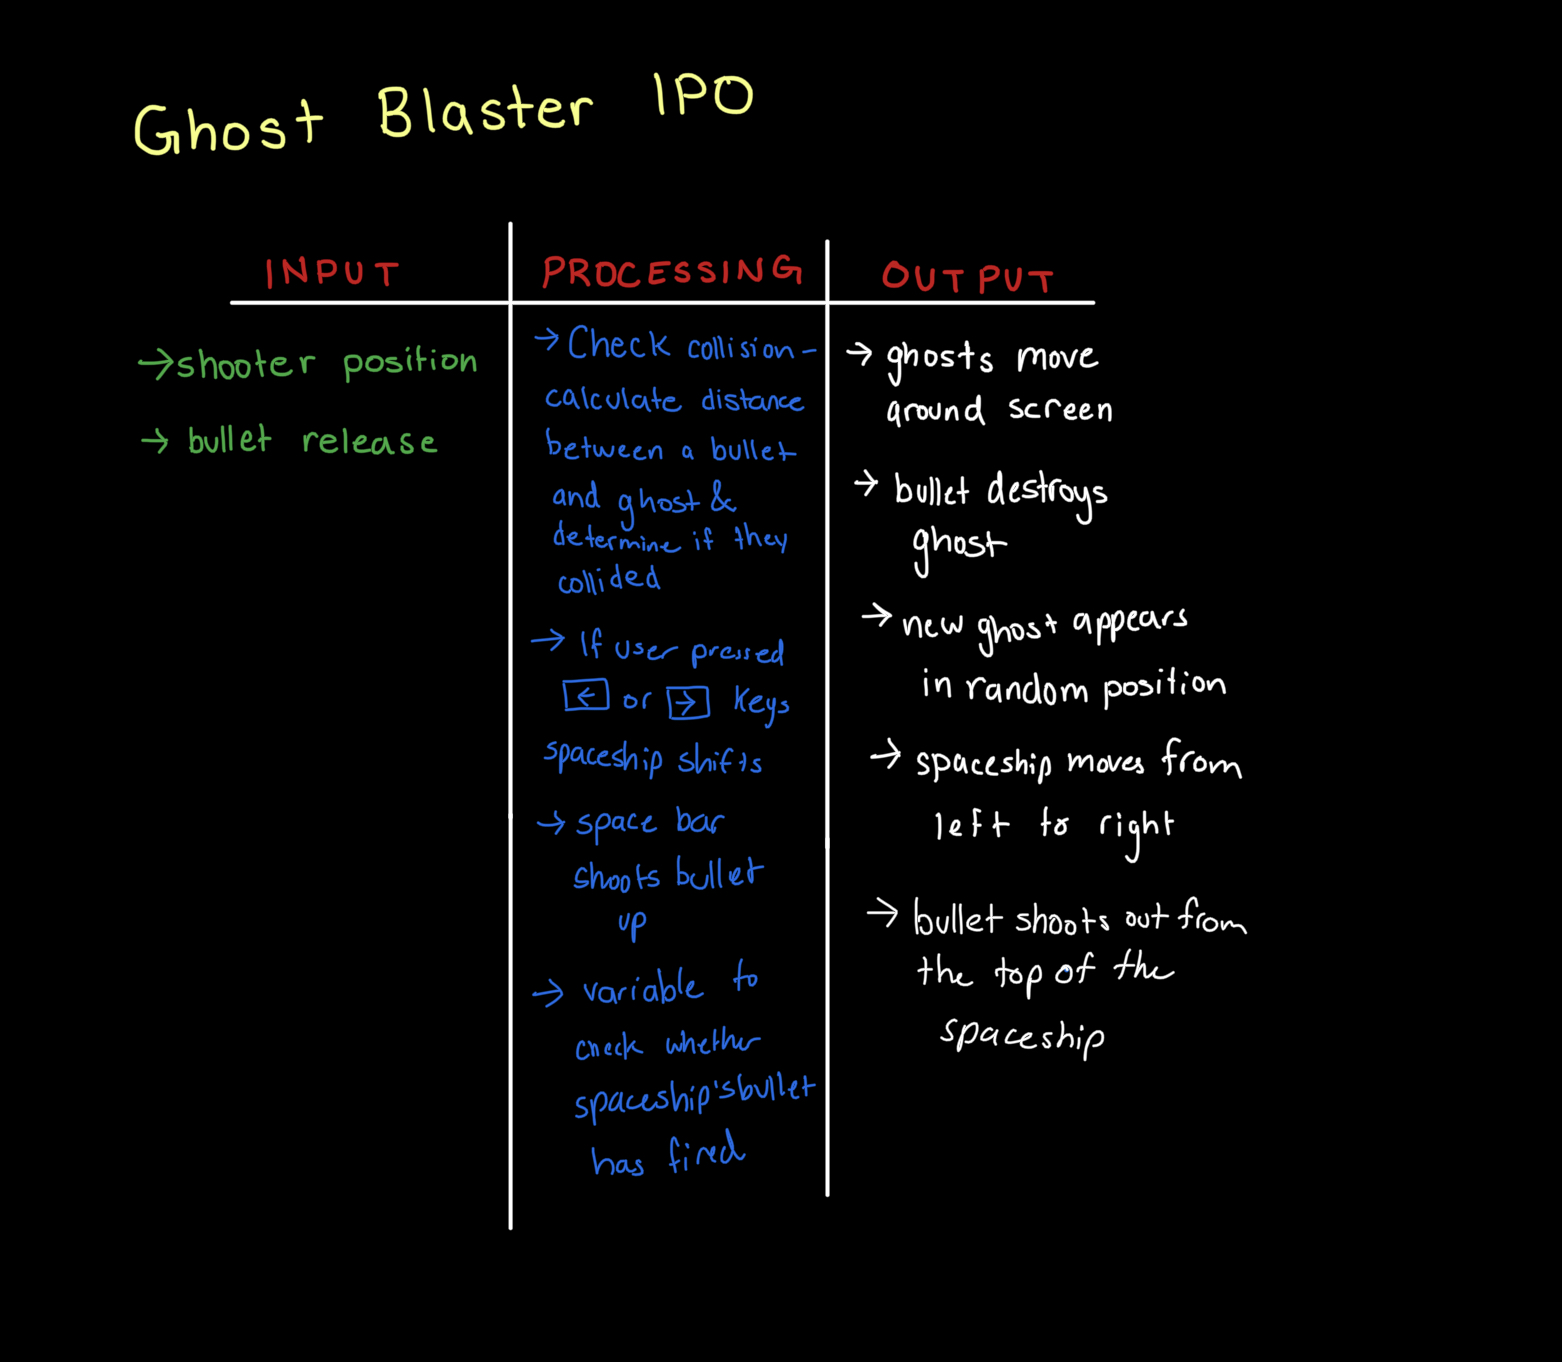 Ghost Blaster IPO
INPUT
→shooter position
→ bullet release
PROCESSING
→ Check collision-
calculate distance
between a bullet
and ghost &
determine if they
collided
→ If user pressed
← or → keys
spaceship shifts
→ space bar
shoots bullet
up
→ variable to
check whether
spaceship's bullet
has fired
OUTPUT
→ ghosts move
around screen
→ bullet destroys
ghost
→ new ghost appears
in random position
→ spaceship moves from
left to right
→ bullet shoots out from
the top of the
spaceship